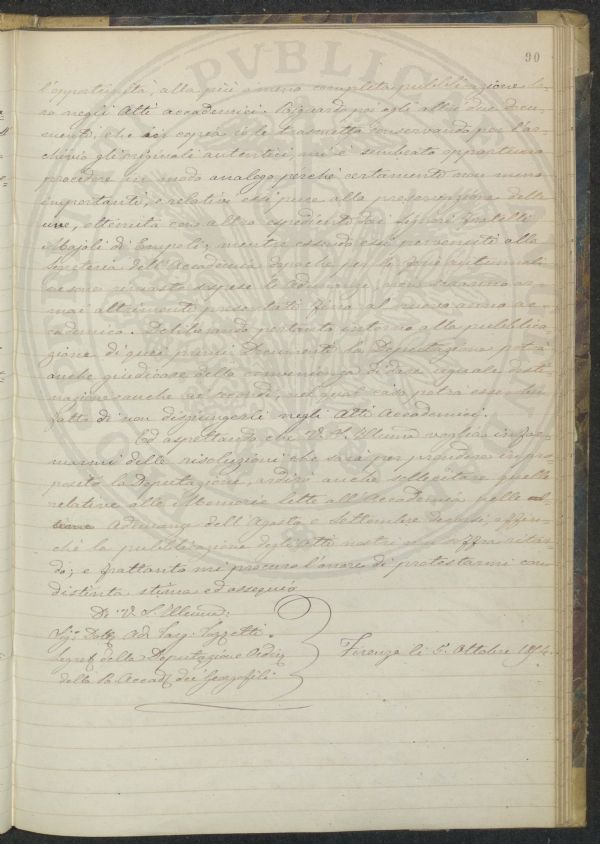 90
l'opportunità, alla più o meno completa pubblicazione lo-
ro negli Atti accademici. Riguardo poi agli altri due docu-
menti, che in copia io le trasmetto conservando per l'ar-
chivio gli originali autentici, mi è sembrato opportuno
procedere in modo analogo perché certamente non meno
importanti, e relativi essi pure alla preservazione delle
uve, ottenuta con altro espediente dai Signori fratelli
Majoli di Empoli; mentre essendo essi pervenuti alla
Segreteria dell'Accademia dopochè per le ferie autunnali
erano rimaste sospese le Adunanze, non saranno or-
mai altrimenti presentati fino al nuovo anno ac-
cademico. Deliberando pertanto intorno alla pubblica-
zione di quei primi Documenti la Deputazione potrà
anche giudicare della convenienza di dare eguale desti-
nazione anche ai secondi, nel qual caso potrà esser
fatto di non disgiungerli negli Atti Accademici.
Ed aspettando che V. S. Illma voglia infor-
marmi delle risoluzioni che sarà per prendere in pro-
posito la Deputazione, ardirò anche sollecitare quelle
relative alle Memorie lette all'Accademia nelle ul-
time Adunanze dell'Agosto e Settembre decorsi, affin-
chè la pubblicazione degli Atti nostri non soffra ritar-
do; e frattanto mi procuro l'onore di protestarmi con
distinta stima ed ossequio
Di V. S. Illma:
Sigr. Dott. Ad. Targ. Tozzetti
Segret. della Deputazione
della R. Accad. dei Georgofili
Firenze li 5. Ottobre